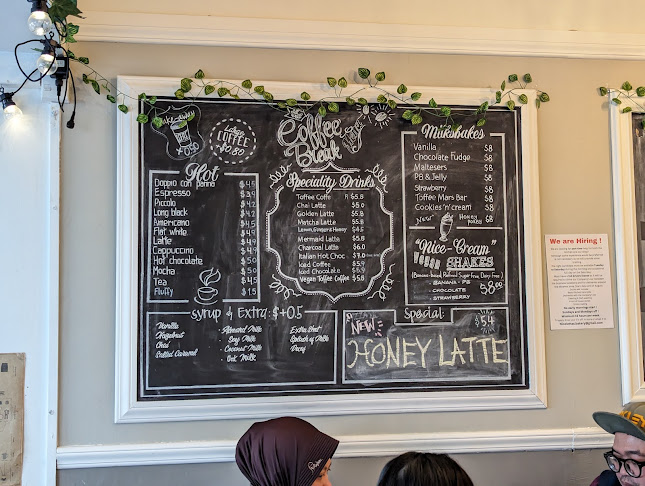 Large
COFFEE
+0.80
Coffee
Break
Hot
Doppio con panna $4.5
Espresso $3.9
Piccolo $4.2
Long black $4.2
Americano $4.5
Flat white $4.9
Latte $4.9
Cappuccino $4.9
Hot chocolate $5.0
Mocha $5.0
Tea $4.5
Fluffy $1.5
Speciality Drinks
Toffee Coffe R $5.8
Chai Latte $5.0
Golden Latte $5.8
Matcha Latte $5.8
Lemon, Ginger & Honey $4.5
Mermaid Latte $5.8
Charcoal Latte $6.0
Italian Hot Choc
Iced Coffee $5.9
Iced Chocolate $6.9
Vegan Toffee Coffee $5.8
Milkshakes
Vanilla $8
Chocolate Fudge $8
Maltesers $8
PB & Jelly $8
Strawberry $8
Toffee Mars Bar $8
Cookies 'n' cream $8
New
"Nice-Cream"
SHAKES
- BANANA - PB
- CHOCOLATE
- STRAWBERRY
$8.00
Syrup & Extra: $+0.5
Vanilla
Hazelnut
Chai
Salted Caramel
- Almond Milk
- Soy Milk
- Coconut Milk
- Oat Milk
- Extra Shot
- Splash of Milk
- Decaf
Special:
NEW
HONEY LATTE
We are Hiring !